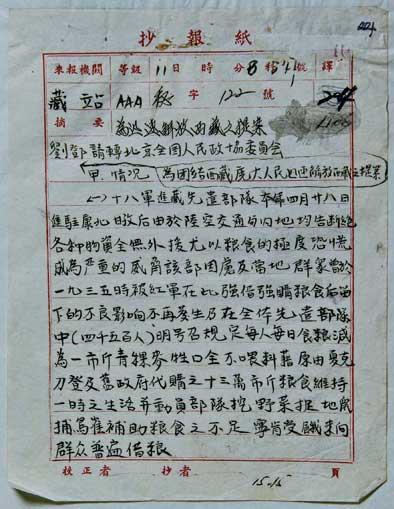 抄報紙
來報機關 等級 11日 時 分 8 號 譯
藏站 AAA 字 122 號
摘要 為迅速解放西藏之提案
劉鄧請轉北京全国人民政协委員会
甲.情况 為团结西藏广大人民迅速解放西藏之提案
(一)十八軍進藏先遣部隊本年四月廿八日
進駐康北日後由於陸空交通与内地均告断绝
各种物資全無外接尤以粮食的極度恐慌
成為严重的威脅該部因處及當地群眾曾於
一九三五時被紅軍在此強借強購粮食后留
下的不良影响不再產生乃在全体先遣部隊
中(四千五百人)明号召规定每人每日食粮減
為一市斤青稞麥牲口全不喂料藉原由夏克
刀登及舊政府代購之十三萬市斤粮食維持
一時之生活并動員部隊挖野菜捉地鼠
捕鳥雀補助粮食之不足寧肯受饑未向
群众普遍借粮
校正者 抄者 頁
15.15